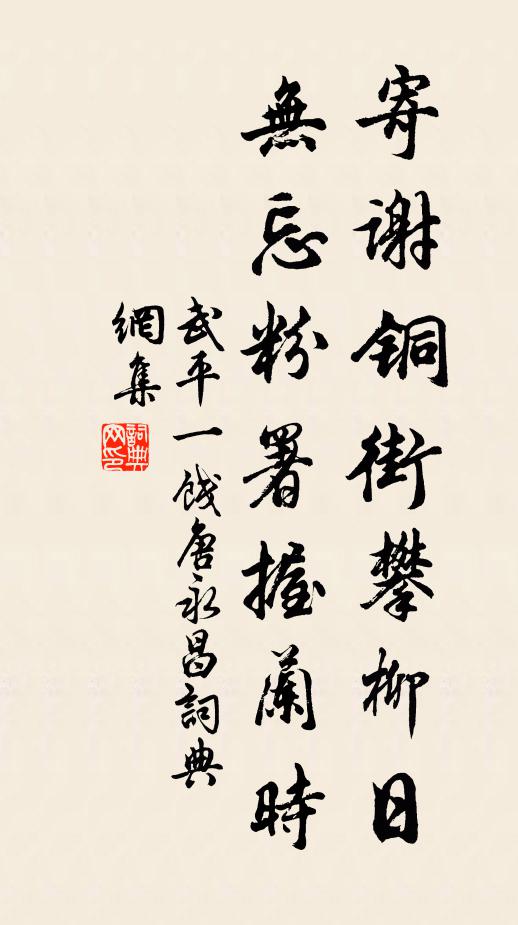 寄谢铜街攀柳日
無忘粉署握蘭時
武平一餞唐永昌詞典
網集
詞典网印